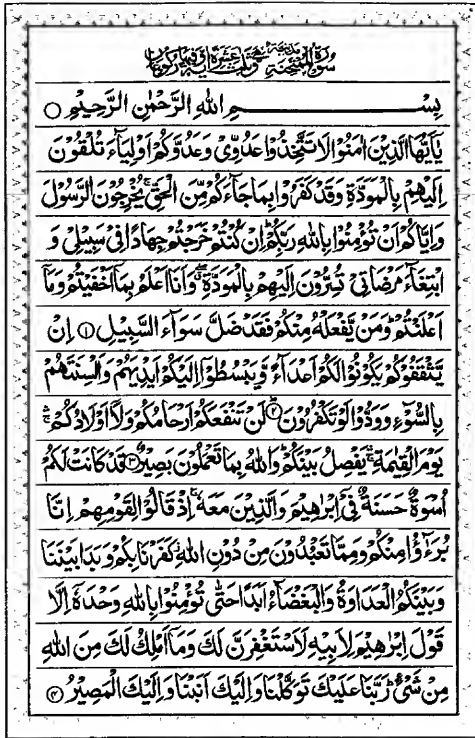 سورة الممتحنة مدنية وهي ثلث عشرة آية وفيها ركوعان
بِسْمِ اللهِ الرَّحْمٰنِ الرَّحِيْمِ ○
يٰۤاَيُّهَا الَّذِيْنَ اٰمَنُوْا لَا تَتَّخِذُوْا عَدُوِّيْ وَعَدُوَّكُمْ اَوْلِيَآءَ تُلْقُوْنَ
اِلَيْهِمْ بِالْمَوَدَّةِ وَقَدْ كَفَرُوْا بِمَا جَآءَكُمْ مِّنَ الْحَقِّ ۚ يُخْرِجُوْنَ الرَّسُوْلَ
وَاِيَّاكُمْ اَنْ تُؤْمِنُوْا بِاللهِ رَبِّكُمْ ؕ اِنْ كُنْتُمْ خَرَجْتُمْ جِهَادًا فِيْ سَبِيْلِيْ وَ
ابْتِغَآءَ مَرْضَاتِيْ تُسِرُّوْنَ اِلَيْهِمْ بِالْمَوَدَّةِ ۖ وَاَنَا اَعْلَمُ بِمَاۤ اَخْفَيْتُمْ وَمَاۤ
اَعْلَنْتُمْ ؕ وَمَنْ يَّفْعَلْهُ مِنْكُمْ فَقَدْ ضَلَّ سَوَآءَ السَّبِيْلِ ① اِنْ
يَّثْقَفُوْكُمْ يَكُوْنُوْا لَكُمْ اَعْدَآءً وَّيَبْسُطُوْۤا اِلَيْكُمْ اَيْدِيَهُمْ وَاَلْسِنَتَهُمْ
بِالسُّوْٓءِ وَوَدُّوْا لَوْ تَكْفُرُوْنَ ② لَنْ تَنْفَعَكُمْ اَرْحَامُكُمْ وَلَاۤ اَوْلَادُكُمْ ۛ
يَوْمَ الْقِيٰمَةِ ۛ يَفْصِلُ بَيْنَكُمْ ؕ وَاللهُ بِمَا تَعْمَلُوْنَ بَصِيْرٌ ③ قَدْ كَانَتْ لَكُمْ
اُسْوَةٌ حَسَنَةٌ فِيْۤ اِبْرٰهِيْمَ وَالَّذِيْنَ مَعَهٗ ۚ اِذْ قَالُوْا لِقَوْمِهِمْ اِنَّا
بُرَءٰٓؤُا مِنْكُمْ وَمِمَّا تَعْبُدُوْنَ مِنْ دُوْنِ اللهِ ؗ كَفَرْنَا بِكُمْ وَبَدَا بَيْنَنَا
وَبَيْنَكُمُ الْعَدَاوَةُ وَالْبَغْضَآءُ اَبَدًا حَتّٰى تُؤْمِنُوْا بِاللهِ وَحْدَهٗۤ اِلَّا
قَوْلَ اِبْرٰهِيْمَ لِاَبِيْهِ لَاَسْتَغْفِرَنَّ لَكَ وَمَاۤ اَمْلِكُ لَكَ مِنَ اللهِ
مِنْ شَيْءٍ ؕ رَبَّنَا عَلَيْكَ تَوَكَّلْنَا وَاِلَيْكَ اَنَبْنَا وَاِلَيْكَ الْمَصِيْرُ ④